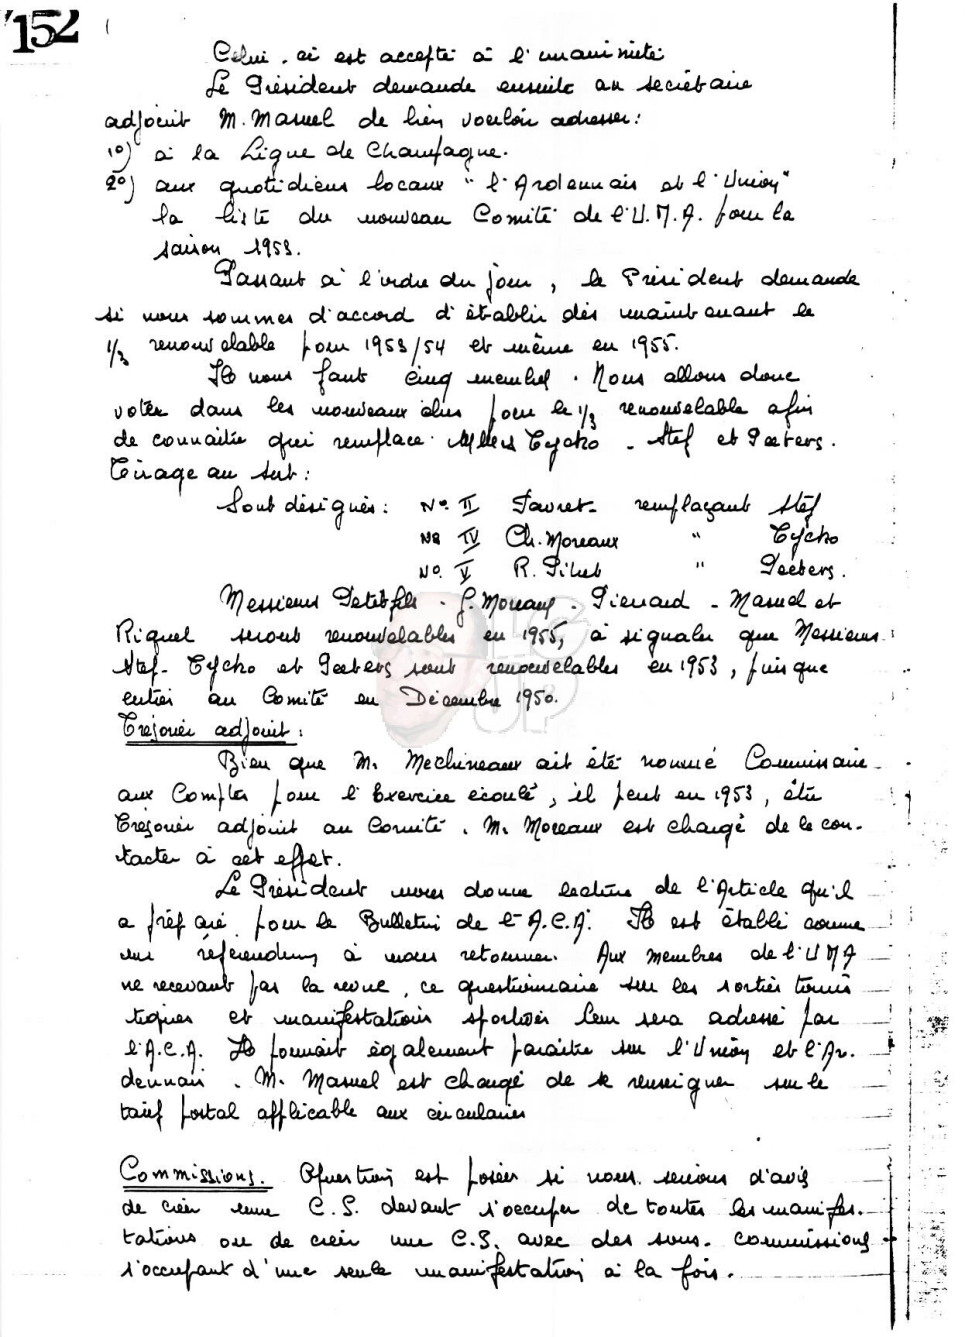 152
Celui-ci est accepté à l'unanimité
Le Président demande ensuite au secrétaire
adjoint M. Manuel de bien vouloir adresser :
1o) à la Ligue de Champagne.
2o) aux quotidiens locaux "l'Ardennais et l'Union"
la liste du nouveau Comité de l'U.M.A. pour la
saison 1953.
Passant à l'ordre du jour, le Président demande
si nous sommes d'accord d'établir dès maintenant le
1/3 renouvelable pour 1953/54 et même en 1955.
Il nous faut cinq membres. Nous allons donc
voter dans les nouveaux élus pour le 1/3 renouvelable afin
de connaître qui remplace Tycho - Stef et Peeters.
Tirage au sort :
Sont désignés : No. II Favret - remplaçant Stef
No IV Ch. Moreaux " Tycho
No. V R. " Peeters.
Messieurs Petitfils - J. Moreaux - Pierrard - Manuel et
Riquel seront renouvelables en 1955, à signaler que Messieurs
Stef - Tycho et Peeters sont renouvelables en 1953, puisque
entrés au Comité en Décembre 1950.
Trésorier adjoint :
Bien que M. Mechineaux ait été nommé Commissaire
aux Comptes pour l'Exercice écoulé, il peut en 1953, être
Trésorier adjoint au Comité. M. Moreaux est chargé de le con-
tacter à cet effet.
Le Président nous donne lecture de l'Article qu'il
a préparé pour le Bulletin de l'A.C.A. Il est établi comme
un référendum à nous retourner. Aux membres de l'UMA
ne recevant pas la revue, ce questionnaire sur les sorties touris
tiques et manifestations sportives leur sera adressé par
l'A.C.A. Il pourrait également paraître sur l'Union et l'Ar-
dennais. M. Manuel est chargé de se renseigner sur le
tarif postal applicable aux circulaires
Commissions. Question est posée si nous serions d'avis
de créer une C.S. devant s'occuper de toutes les manifes-
tations ou de créer une C.S. avec des sous-commissions
s'occupant d'une seule manifestation à la fois.